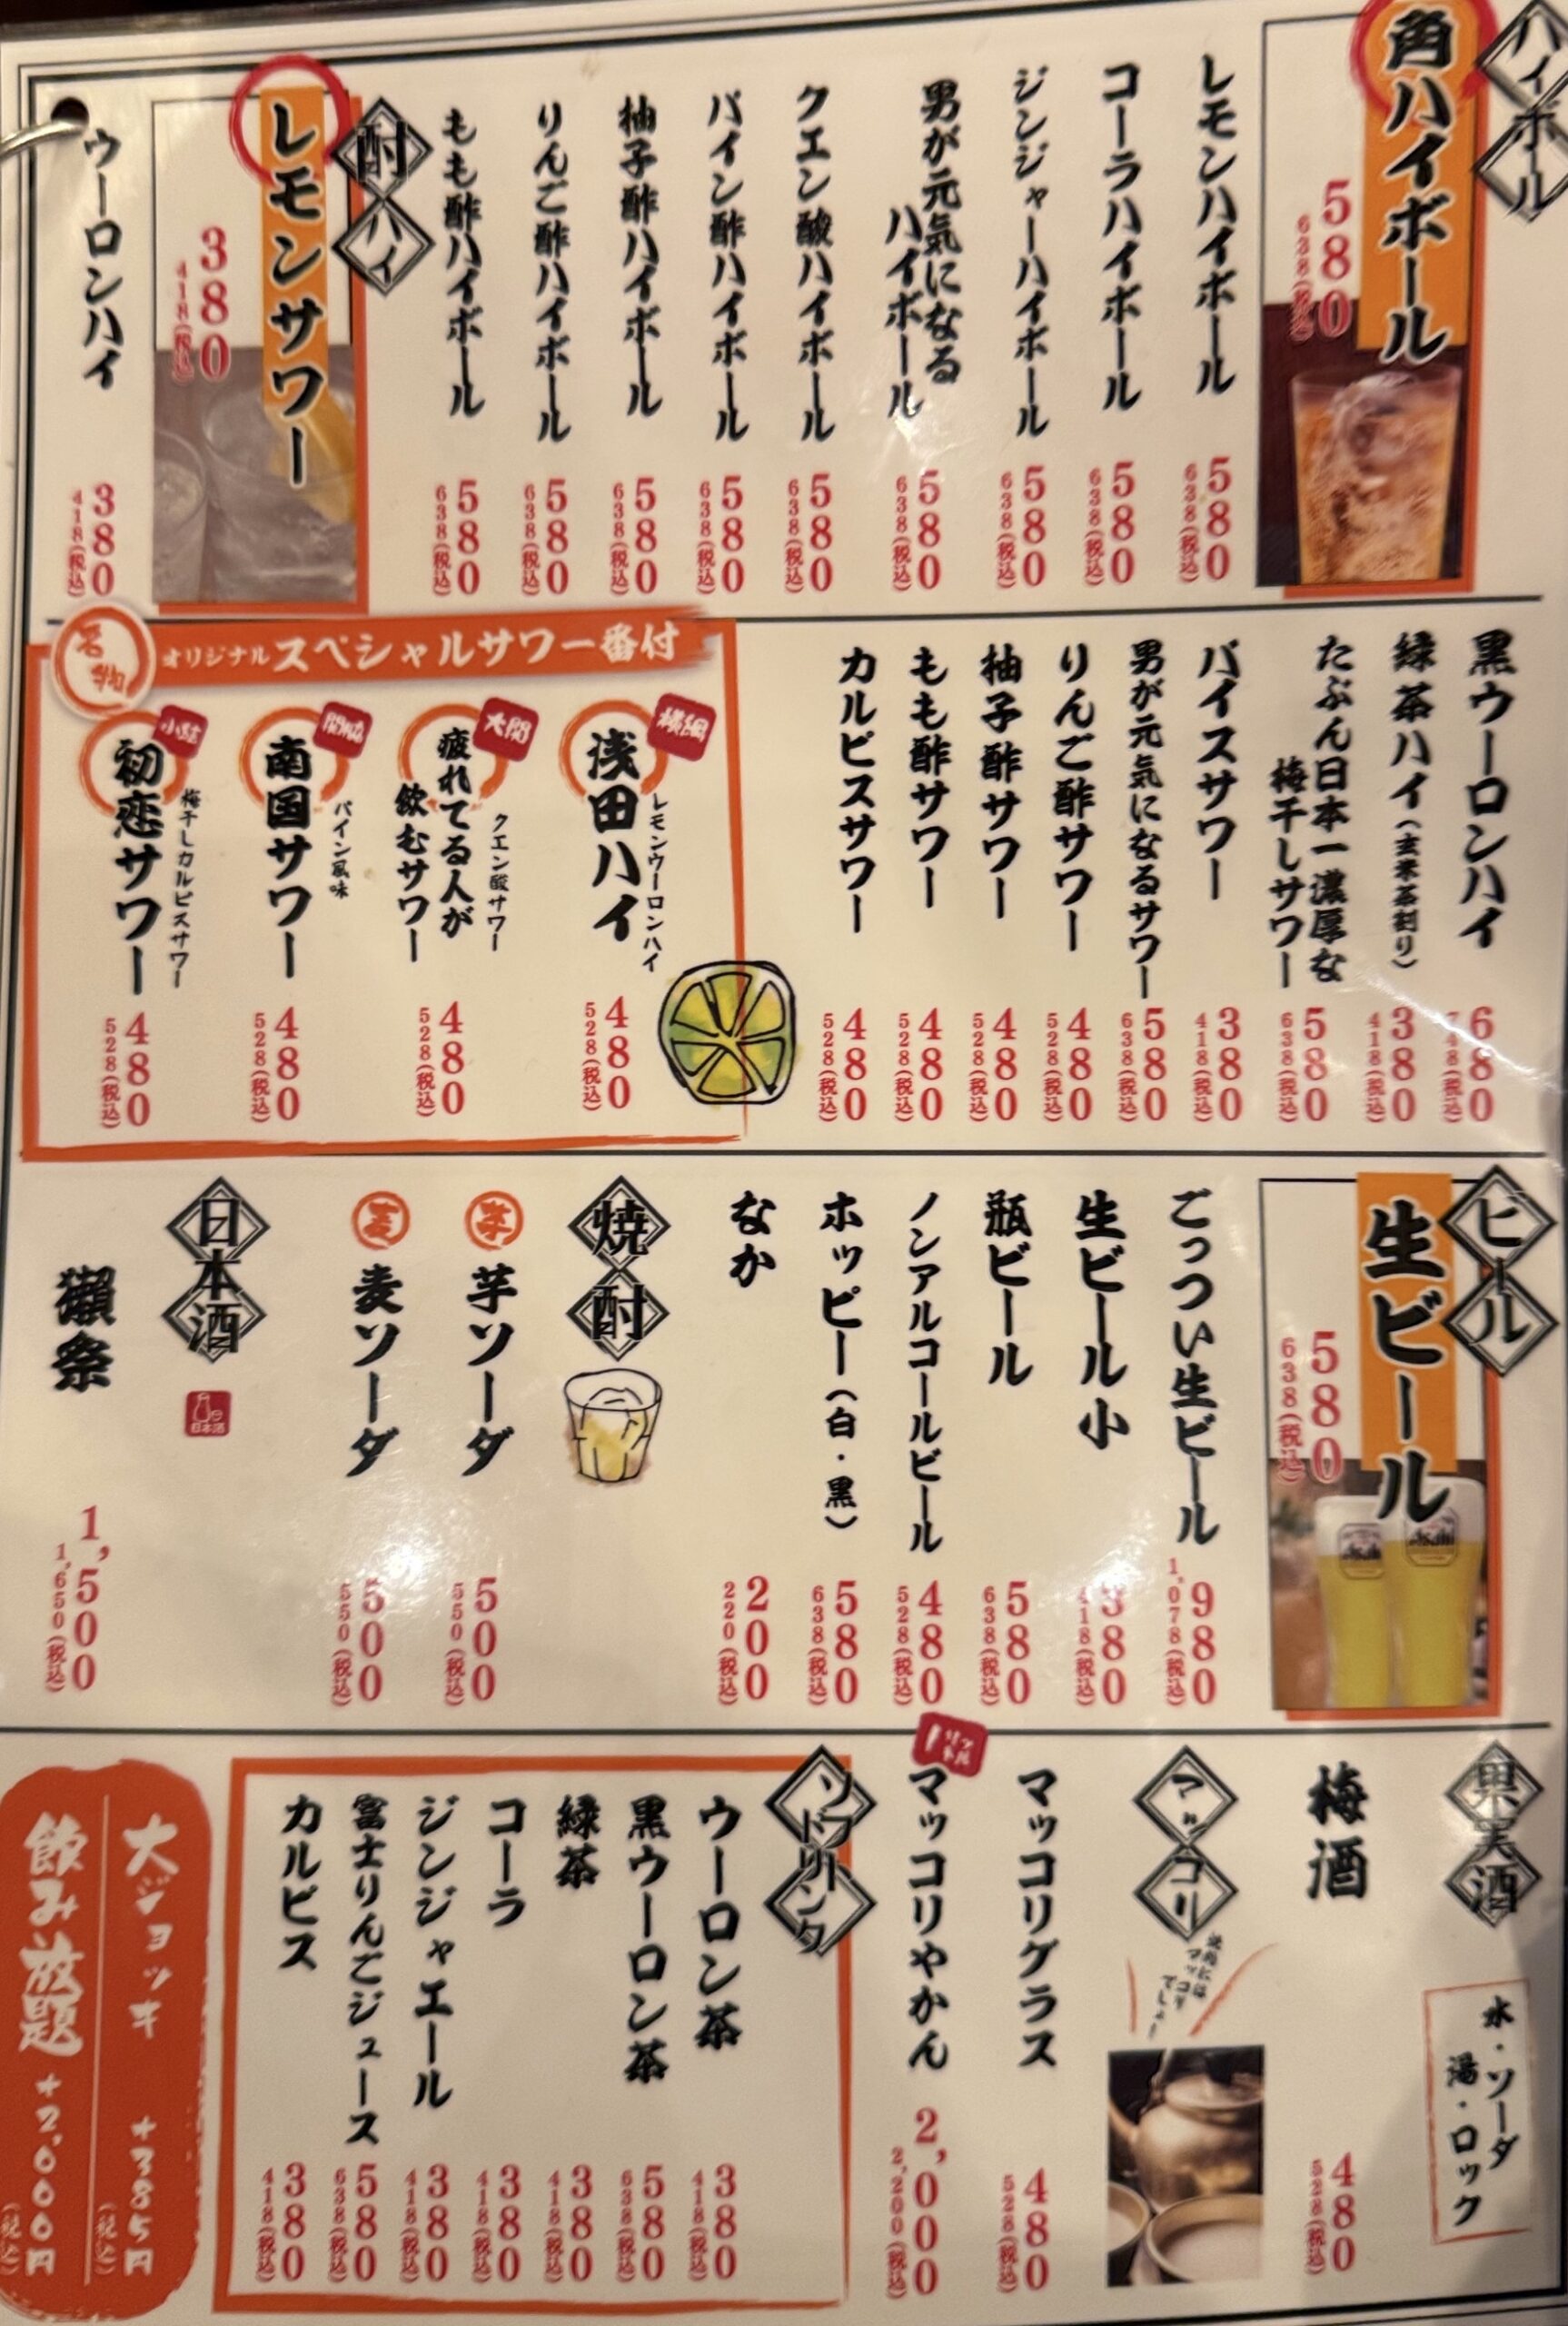 ハイボール
角ハイボール
580
638(税込)
レモンハイボール
580
638(税込)
コーラハイボール
580
638(税込)
ジンジャーハイボール
580
638(税込)
男が元気になる
ハイボール
580
638(税込)
クエン酸ハイボール
580
638(税込)
パイン酢ハイボール
580
638(税込)
柚子酢ハイボール
580
638(税込)
りんご酢ハイボール
580
638(税込)
もも酢ハイボール
580
638(税込)
酎ハイ
レモンサワー
380
418(税込)
ウーロンハイ
380
418(税込)
黒ウーロンハイ
680
748(税込)
緑茶ハイ(玄米茶割り)
380
418(税込)
たぶん日本一濃厚な
梅干しサワー
580
638(税込)
バイスサワー
380
418(税込)
男が元気になるサワー
580
638(税込)
りんご酢サワー
480
528(税込)
柚子酢サワー
480
528(税込)
もも酢サワー
480
528(税込)
カルピスサワー
480
528(税込)
名物
オリジナルスペシャルサワー番付
横綱
レモンウーロンハイ
浅田ハイ
480
528(税込)
大関
クエン酸サワー
疲れてる人が
飲むサワー
480
528(税込)
関脇
パイン風味
南国サワー
480
528(税込)
小結
梅干しカルピスサワー
初恋サワー
480
528(税込)
ビール
生ビール
580
638(税込)
Asahi
Asahi
ごっつい生ビール
980
1,078(税込)
生ビール小
380
418(税込)
瓶ビール
580
638(税込)
ノンアルコールビール
480
528(税込)
ホッピー(白・黒)
580
638(税込)
なか
200
220(税込)
焼酎
芋
芋ソーダ
500
550(税込)
麦
麦ソーダ
500
550(税込)
日本酒
日本酒
獺祭
1,500
1,650(税込)
果実酒
水・ソーダ
湯・ロック
梅酒
480
528(税込)
マッコリ
マッコリグラス
480
528(税込)
1リットル
マッコリやかん
2,000
2,200(税込)
ソフトドリンク
ウーロン茶
380
418(税込)
黒ウーロン茶
580
638(税込)
緑茶
380
418(税込)
コーラ
380
418(税込)
ジンジャエール
380
418(税込)
富士りんごジュース
580
638(税込)
カルピス
380
418(税込)
大ジョッキ +385円
(税込)
飲み放題 +2,000円
(税込)